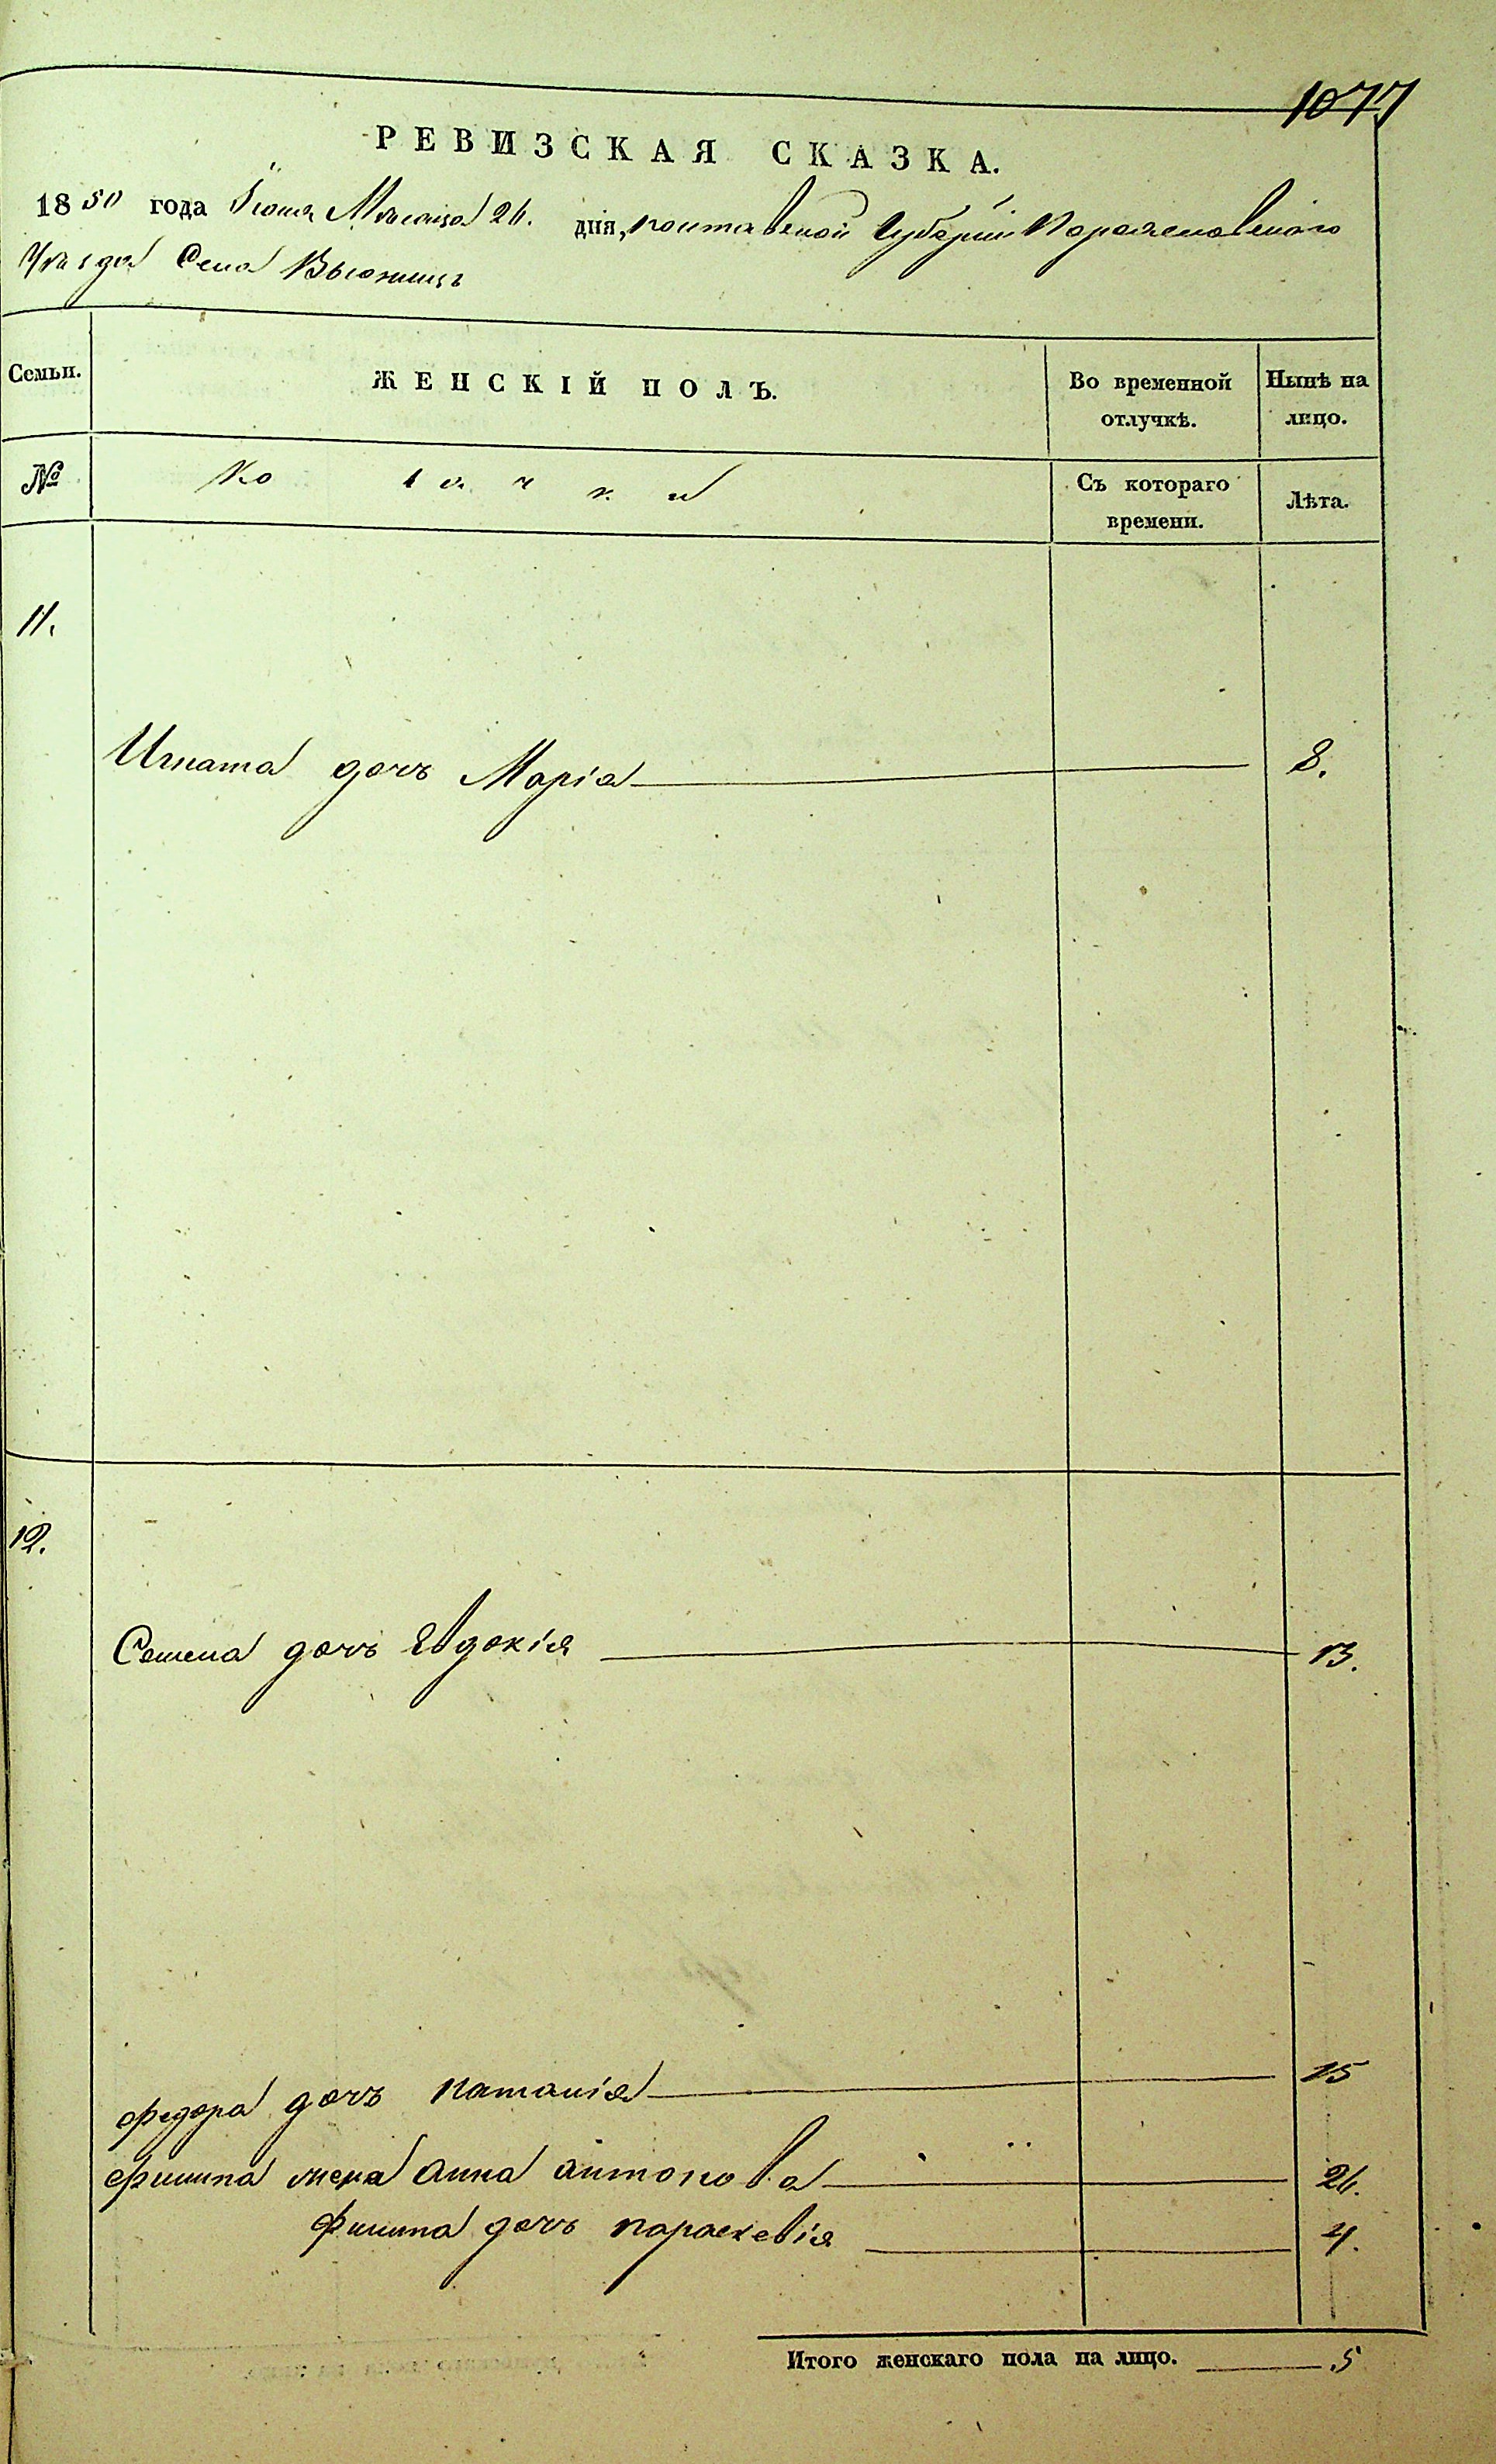 1077
РЕВИЗСКАЯ СКАЗКА.
1850 года Іюня Мѣсяца 26. дня, полтавской Губерніи
Уѣзда Села
Семьи. ЖЕНСКІЙ ПОЛЪ. Во временной отлучкѣ. Нынѣ на лицо.
№ Козачки Съ котораго времени. Лѣта.
11.
Игната дочь Марія 8.
12.
Семена дочь Евдокія 13.
федора дочь наталія 15
филипа жена анна антонова 26.
филипа дочь параскевія 4.
Итого женскаго пола на лицо. 5